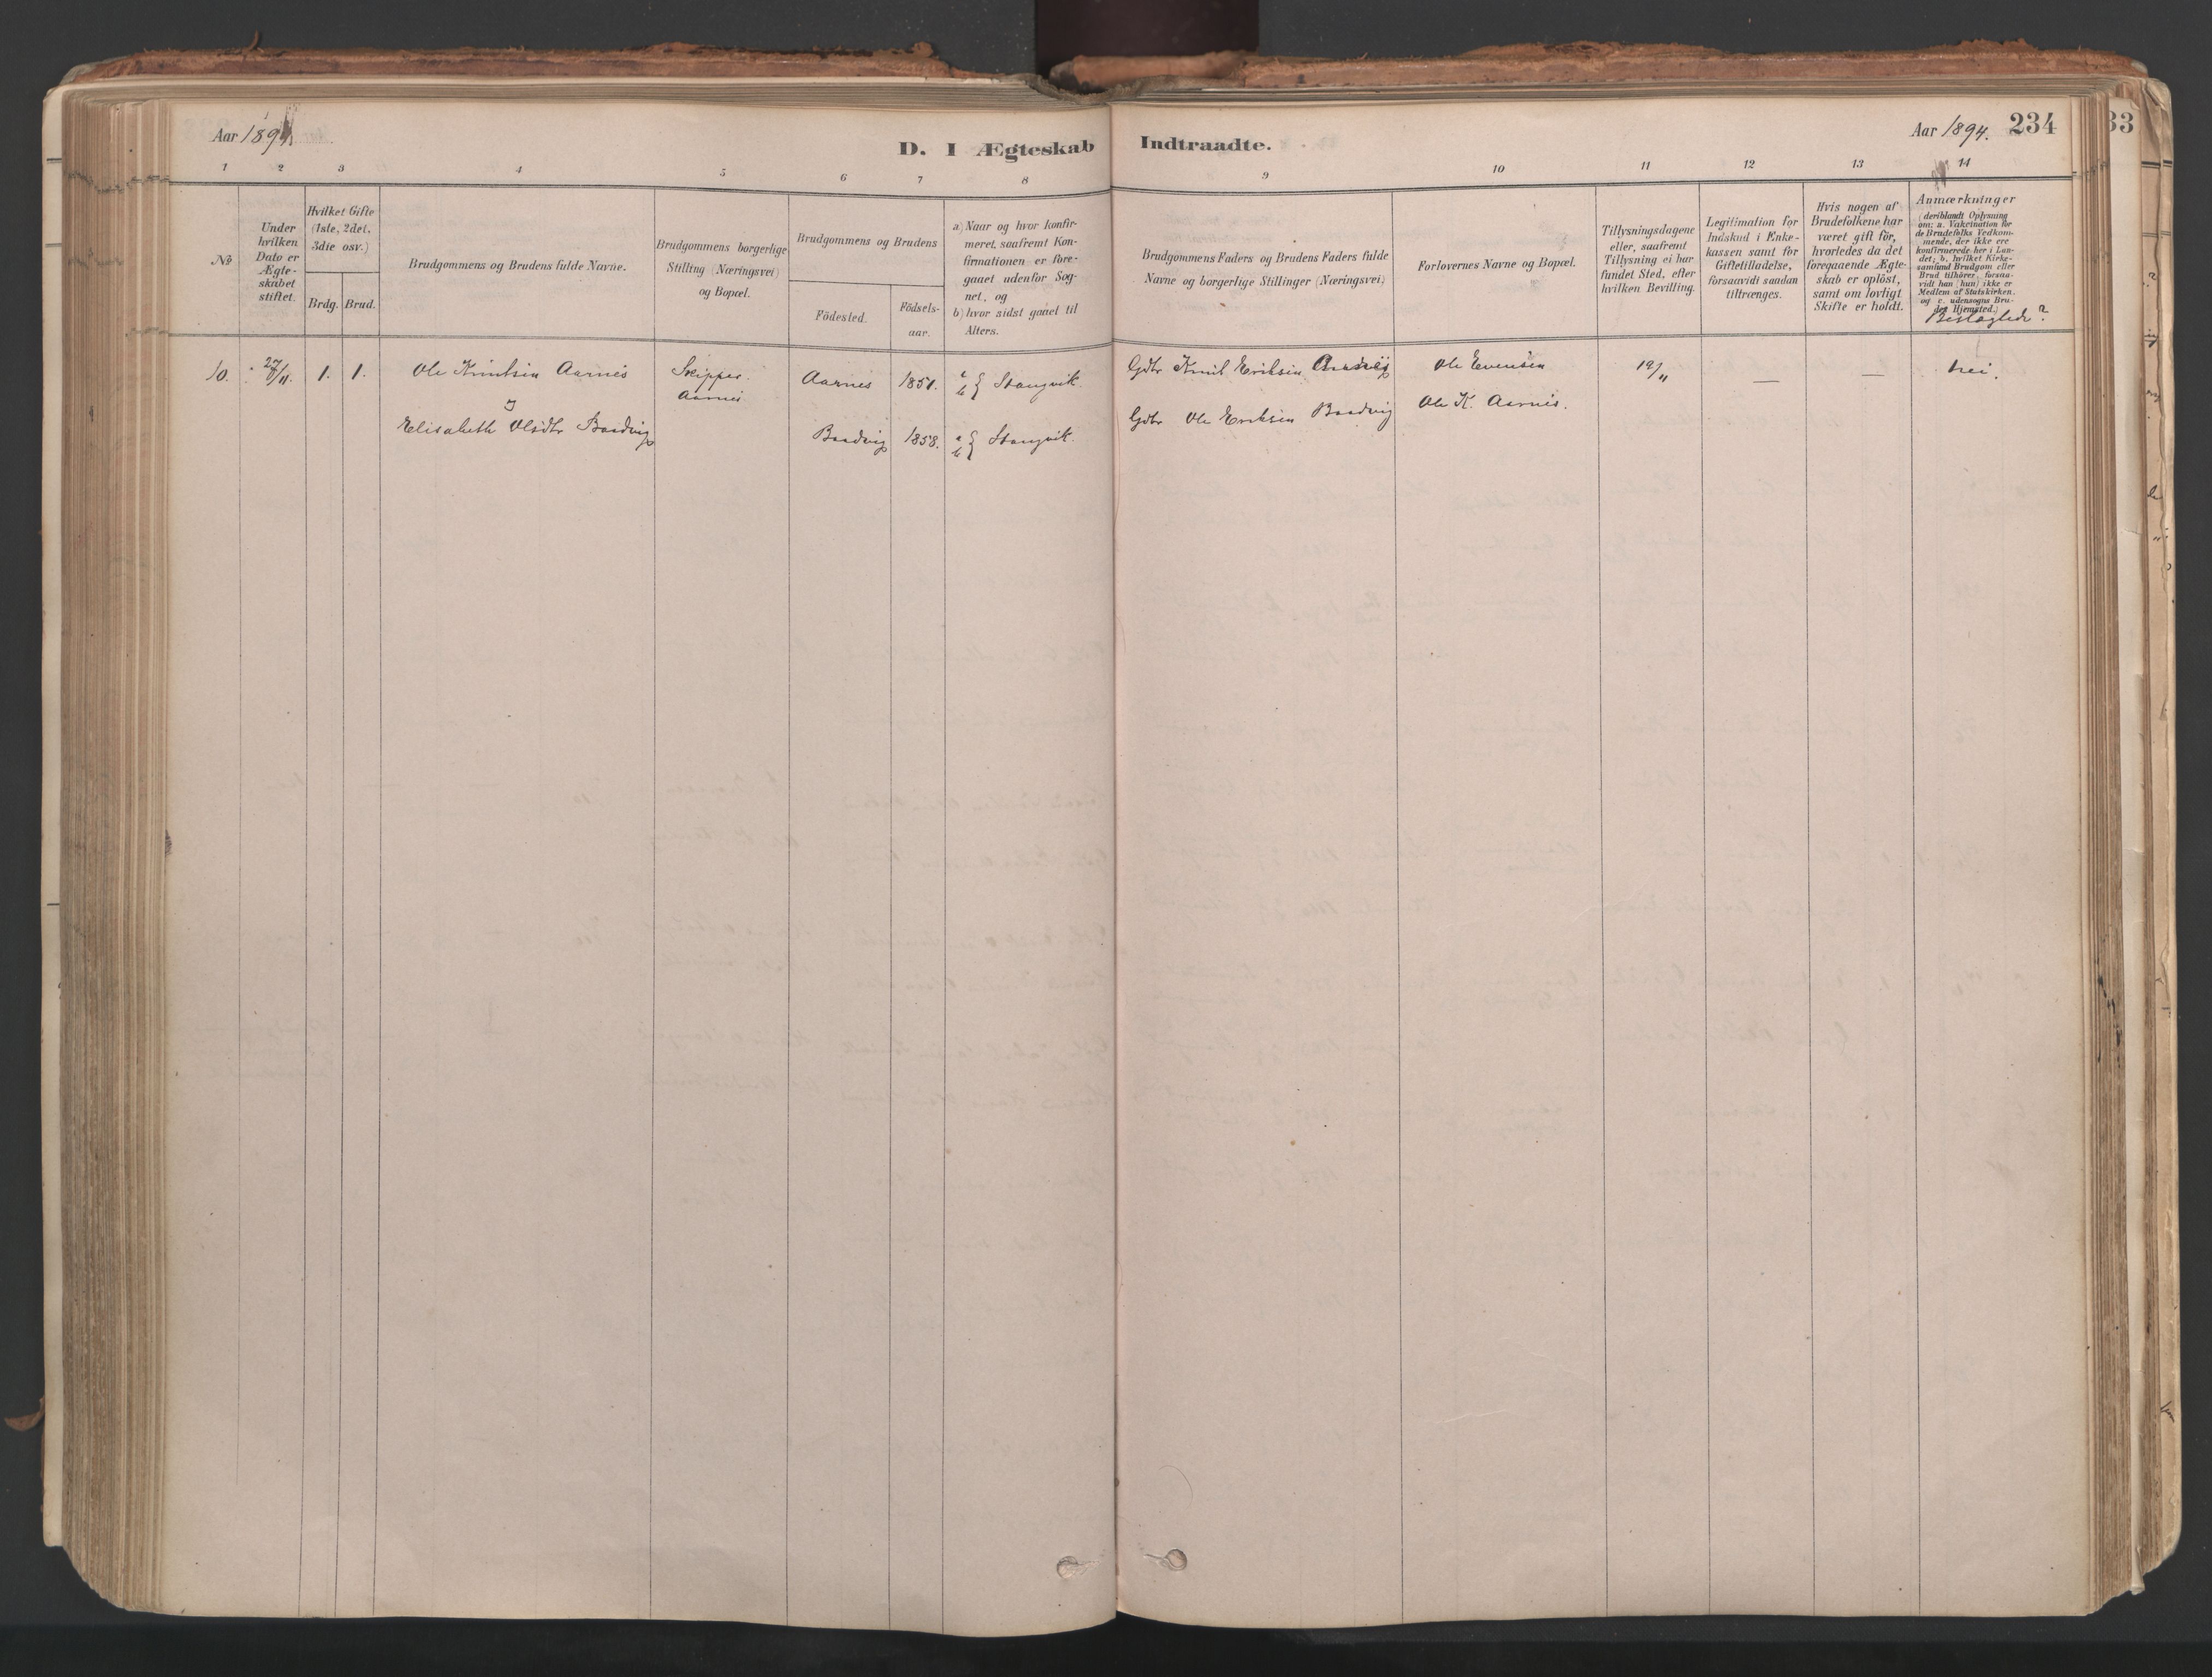 Aar 1894.
D. I Ægteskab
Indtraadte.
Aar 1894. 234
33
1 2 3 4 5 6 7 8
9 10 11 12 13 14
No
Under hvilken Dato er Ægteskabet stiftet.
Hvilket Gifte (1ste, 2det, 3die osv.)
Brdg. Brud.
Brudgommens og Brudens fulde Navne.
Brudgommens borgerlige Stilling (Næringsvei) og Bopæl.
Brudgommens og Brudens
Födested.
Födsels-aar.
a) Naar og hvor konfirmeret, saafremt Konfirmationen er foregaaet udenfor Sognet, og
b) hvor sidst gaaet til Alters.
Brudgommens Faders og Brudens Faders fulde Navne og borgerlige Stillinger (Næringsvei)
Forlovernes Navne og Bopæl.
Tillysningsdagene eller, saafremt Tillysning ei har fundet Sted, efter hvilken Bevilling.
Legitimation for Indskud i Enkekassen samt for Giftetilladelse, forsaavidt saadan tiltrænges.
Hvis nogen af Brudefolkene har været gift för, hvorledes da det foregaaende Ægteskab er oplöst, samt om lovligt Skifte er holdt.
Anmærkninger
(deriblandt Oplysning om: a. Vakcination for de Brudefolks Vedkommende, der ikke ere konfirmerede her i Landet; b. hvilket Kirkesamfund Brudgom eller Brud tilhörer, forsaavidt han (hun) ikke er Medlem af Statskirken, og c. udensogns Brudes Hjemsted.)
Beslægtede?
10. 27/11. 1. 1. Ole Knutsen Aarnes Skipper. Aarnes 1851. a b } Stangvik. Gdbr Knut Eriksen Ole Evensen 19/11 — — nei.
Aarnes
& Ole K. Aarnes.
Elisabeth Olsdtr Baadvig Baadvig 1858. a b } Stangvik. Gdbr Ole Eriksen Baadvig